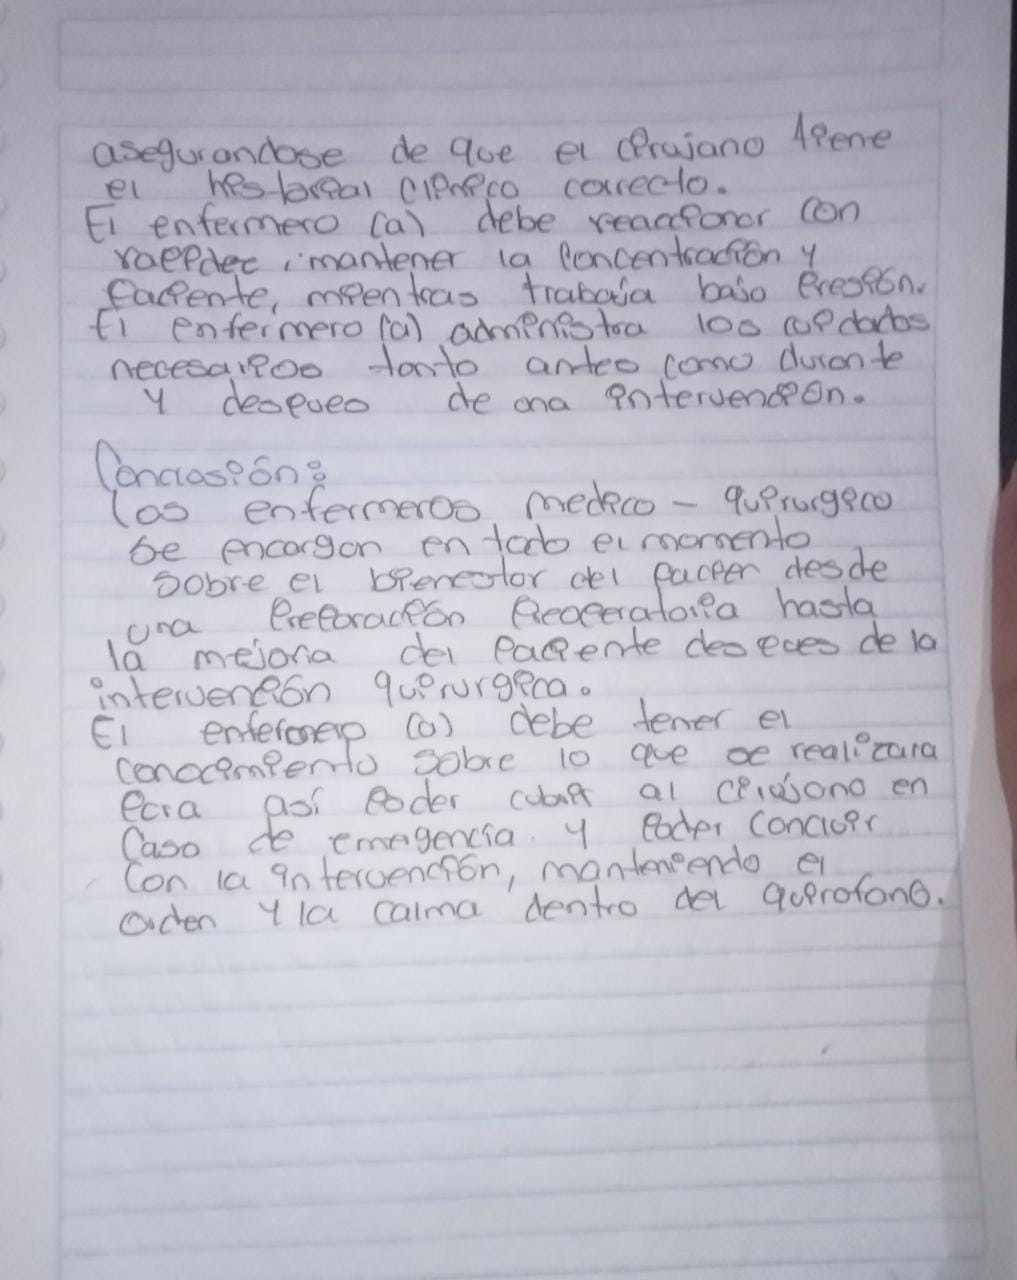 asegurandose de que el cirujano tiene
el historial clinico correcto.
El enfermero (a) debe reaccionar con
rapidez, mantener la concentración y
paciente, mientras trabaja bajo presión.
El enfermero (a) administra los cuidados
necesarios tanto antes como durante
y despues de una intervención.
Conclusión:
Los enfermeros medico - quirurgico
se encargan en todo el momento
sobre el bienestar del pacien desde
una preparación preoperatoria hasta
la mejoria del paciente despues de la
intervención quirurgica.
El enfermero (a) debe tener el
conocimiento sobre lo que se realizara
para así poder cubrir al cirujano en
caso de emergencia. y poder concluir
con la intervención, manteniendo el
orden y la calma dentro del quirofano.